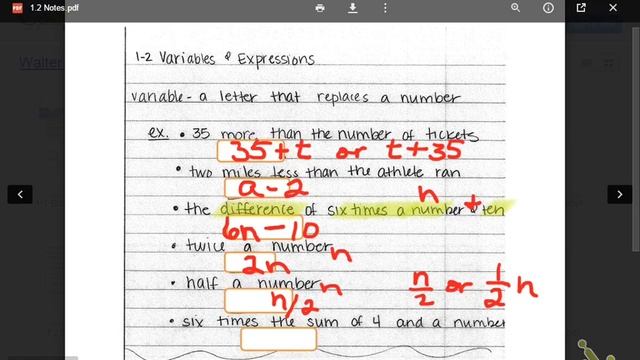 1.2 Notes.pdf
Walter
1-2 Variables & Expressions
variable - a letter that replaces a number
ex. • 35 more than the number of tickets
35+t or t+35
• two miles less than the athlete ran
a-2
n
• the difference of six times a number & ten
6n-10
• twice a number n
2n
• half a number n
n/2
n/2 or 1/2 n
• six times the sum of 4 and a number